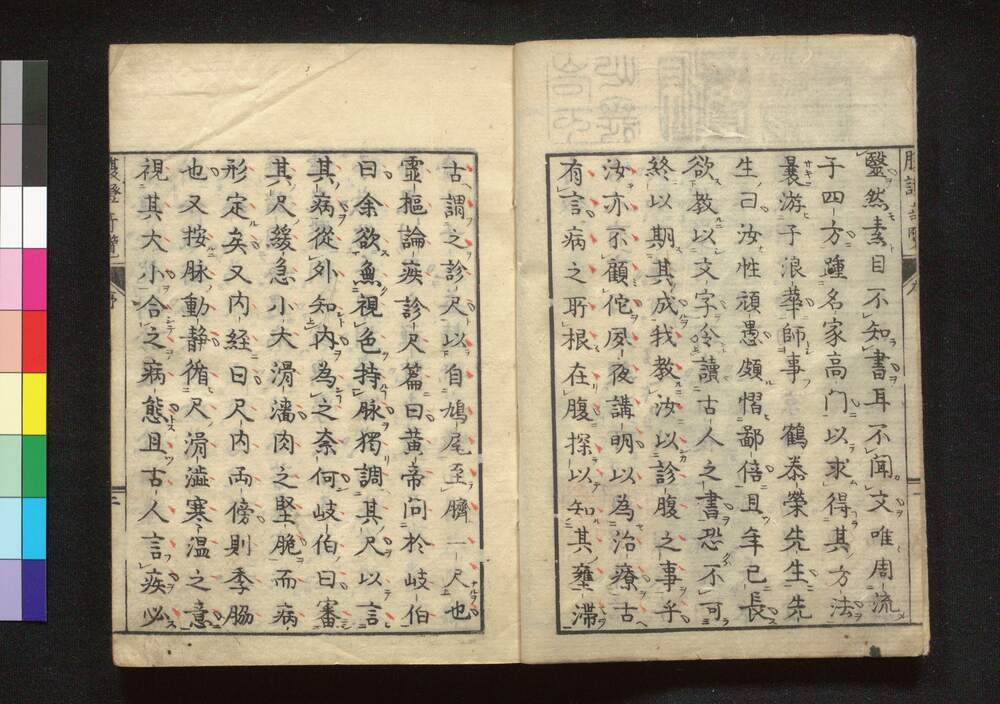 毉然素目不知書耳不聞文唯周流
于四方踵名家高門以求得其方法
曩游于浪華師事鶴泰榮先生先
生曰汝性頑愚頗慴鄙倍且年已長
欲教以文字令讀古人之書恐不可
終以期其成我教汝以診腹之事乎
汝亦不顧佗夙夜講明以為治療古
有言病之所根在腹探以知其壅滞
古謂之診尺以自鳩尾至臍一尺也
靈樞論疾診尺篇曰黄帝問於岐伯
曰余欲無視色持脉獨調其尺以言
其病從外知内為之奈何岐伯曰審
其尺緩急小大滑濇肉之堅脆而病
形定矣又内経曰尺内両傍則季脇
也又按脉動静循尺滑澁寒温之意
視其大小合之病態且古人言疾必
序
二